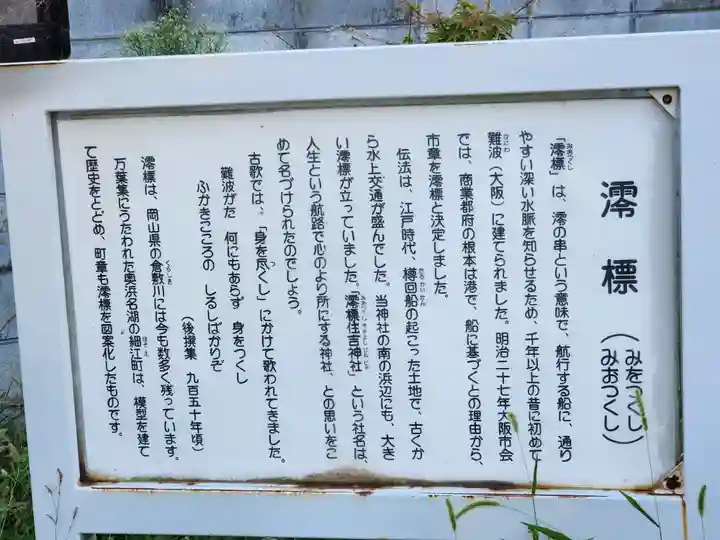 澪標（みをつくし
みおつくし）
「澪標」は、澪の串という意味で、航行する船に、通り
やすい深い水脈を知らせるため、千年以上の昔に初めて
難波（大阪）に建てられました。明治二十七年大阪市会
では、商業都府の根本は港で、船に基づくとの理由から、
市章を澪標と決定しました。
伝法は、江戸時代、樽回船の起こった土地で、古くか
ら水上交通が盛んでした。当神社の南の浜辺にも、大き
い澪標が立っていました。「澪標住吉神社」という社名は、
人生という航路で心のより所にする神社、との思いをこ
めて名づけられたのでしょう。
古歌では、「身を尽くし」にかけて歌われてきました。
難波がた 何にもあらず 身をつくし
ふかきこころの しるしばかりぞ
（後撰集 九百五十年頃）
澪標は、岡山県の倉敷川には今も数多く残っています。
万葉集にうたわれた奥浜名湖の細江町は、模型を建て
て歴史をとどめ、町章も澪標を図案化したものです。